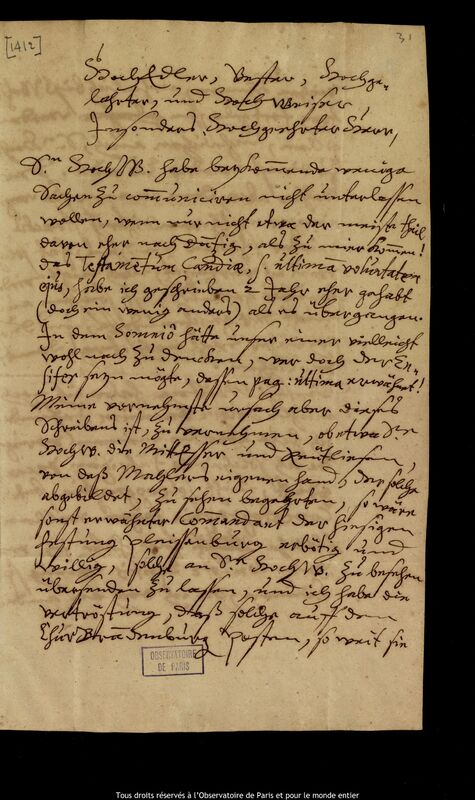 [1412]
31
HochEdler, Vester, Hochge-
lahrter, und Hoch Weiser,
Insonders Hochgeehrter Herr,
Sn. HochW. habe beykommende wenige
Sachen zu communiciren nicht unterlassen
wollen, wenn nur nicht etwa der meiste theil
davon eher nach als zu mier kommen!
das Testamentum Candiæ, s. ultimam voluntatem
ejus, habe ich geschrieben 2 Jahr eher gehabt
(doch ein wenig anders) als es übergangen.
In dem Somnio hätte unser einer vielleicht
wohl nach zu dencken, wer doch der En-
sifer seyn mögte, dessen pag: ultima erwähnet!
Meine vornehmste ursach aber dieses
Schreibens ist, zu vernehmen, ob etwa Sn.
HochW. die Mitesser und
von deß Mahlers eigenen hand, der solche
abgebildet, zu sehen begehrten, so wäre
sonst erwähnter Commandant der hiesigen
festung Pleissenburg erbötig und
willig, solche an Sn. HochW. zu besehen
übersenden zu lassen, und ich habe die
vertröstung, daß solche auff dem
Chur Brandenburg. Posten, so weit sie
OBSERVATOIRE
DE PARIS
Tous droits réservés à l'Observatoire de Paris et pour le monde entier